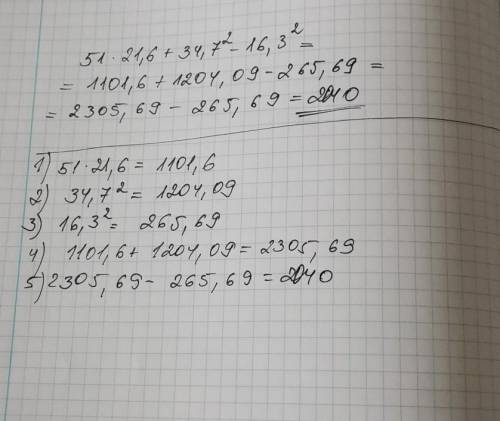 51 · 21,6 + 34,7² - 16,3² =
= 1101,6 + 1204,09 - 265,69 =
= 2305,69 - 265,69 = 2040
1) 51 · 21,6 = 1101,6
2) 34,7² = 1204,09
3) 16,3² = 265,69
4) 1101,6 + 1204,09 = 2305,69
5) 2305,69 - 265,69 = 2040